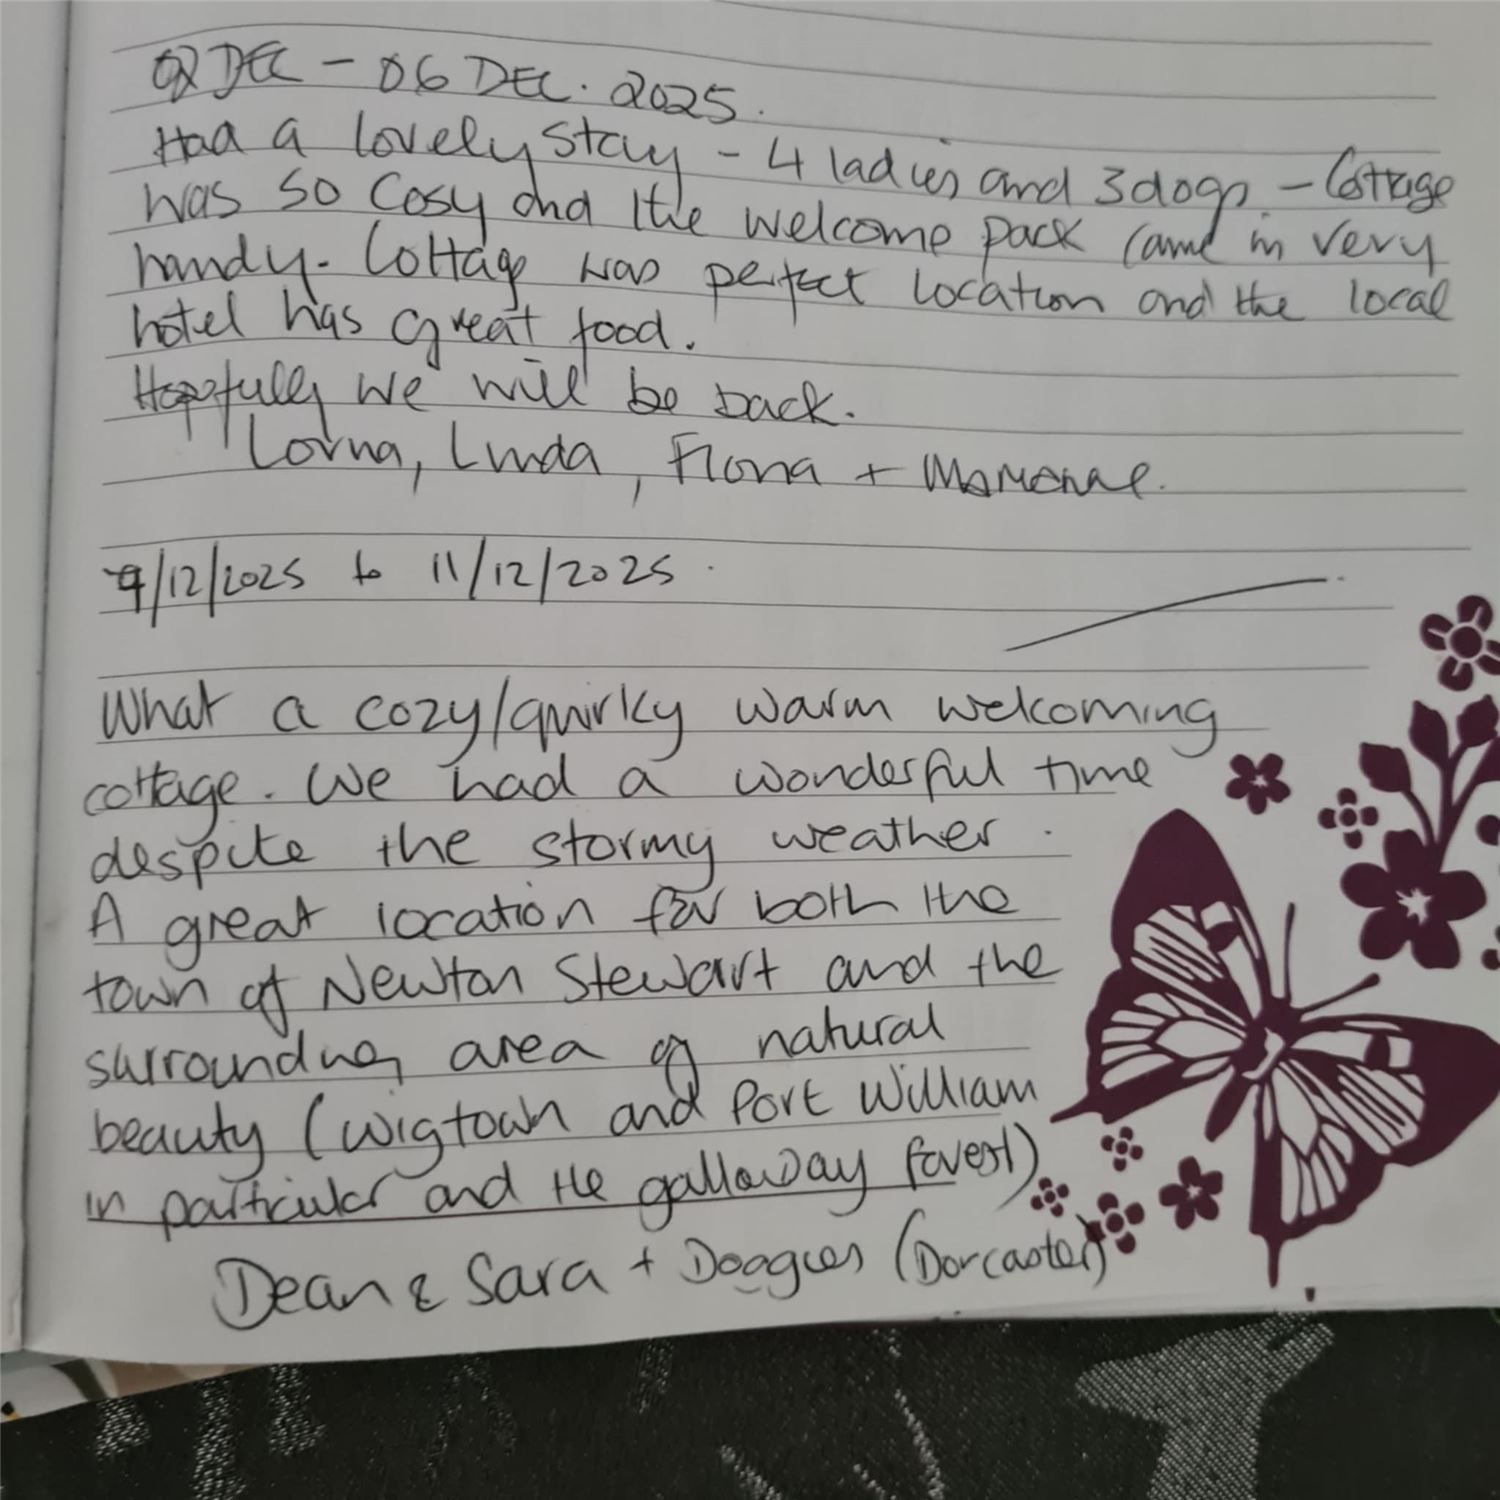 02 DEC - 06 DEC. 2025.
Had a lovely stay - 4 ladies and 3 dogs - Cottage
was so cosy and the welcome pack came in very
handy. Cottage was perfect location and the local
hotel has great food.
Hopefully we will be back.
Lorna, Linda, Fiona +
9/12/2025 to 11/12/2025.
What a cozy/quirky warm welcoming
cottage. We had a wonderful time
despite the stormy weather.
A great location for both the
town of Newton Stewart and the
surrounding area of natural
beauty (Wigtown and Port William
in particular and the galloway forest)
Dean & Sara + Doggies (Doncaster)